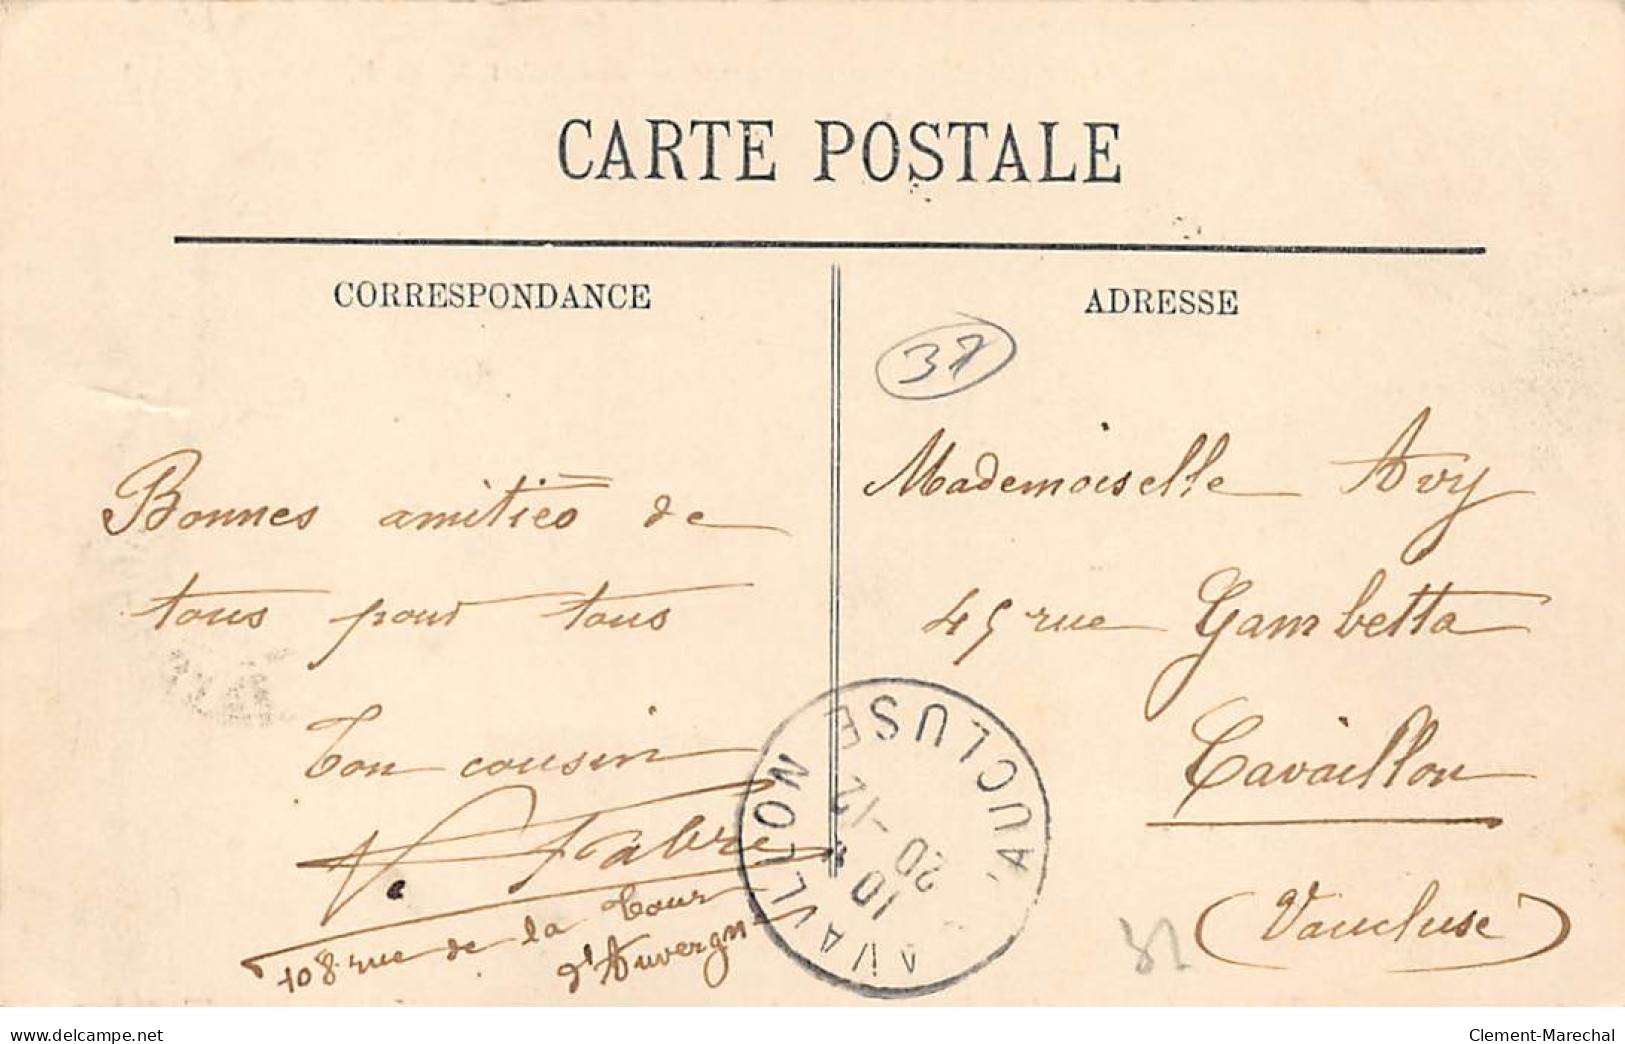 CARTE POSTALE
CORRESPONDANCE
ADRESSE
37
Bonnes amitiés de
tous pour tous
Ton cousin
V. Fabre
108 rue de la Tour
d'Auvergne
Mademoiselle Avy
45 rue Gambetta
Cavaillon
(Vaucluse)
VAUCLUSE
10 *
20 -12
delcampe.net
Clement-Marechal